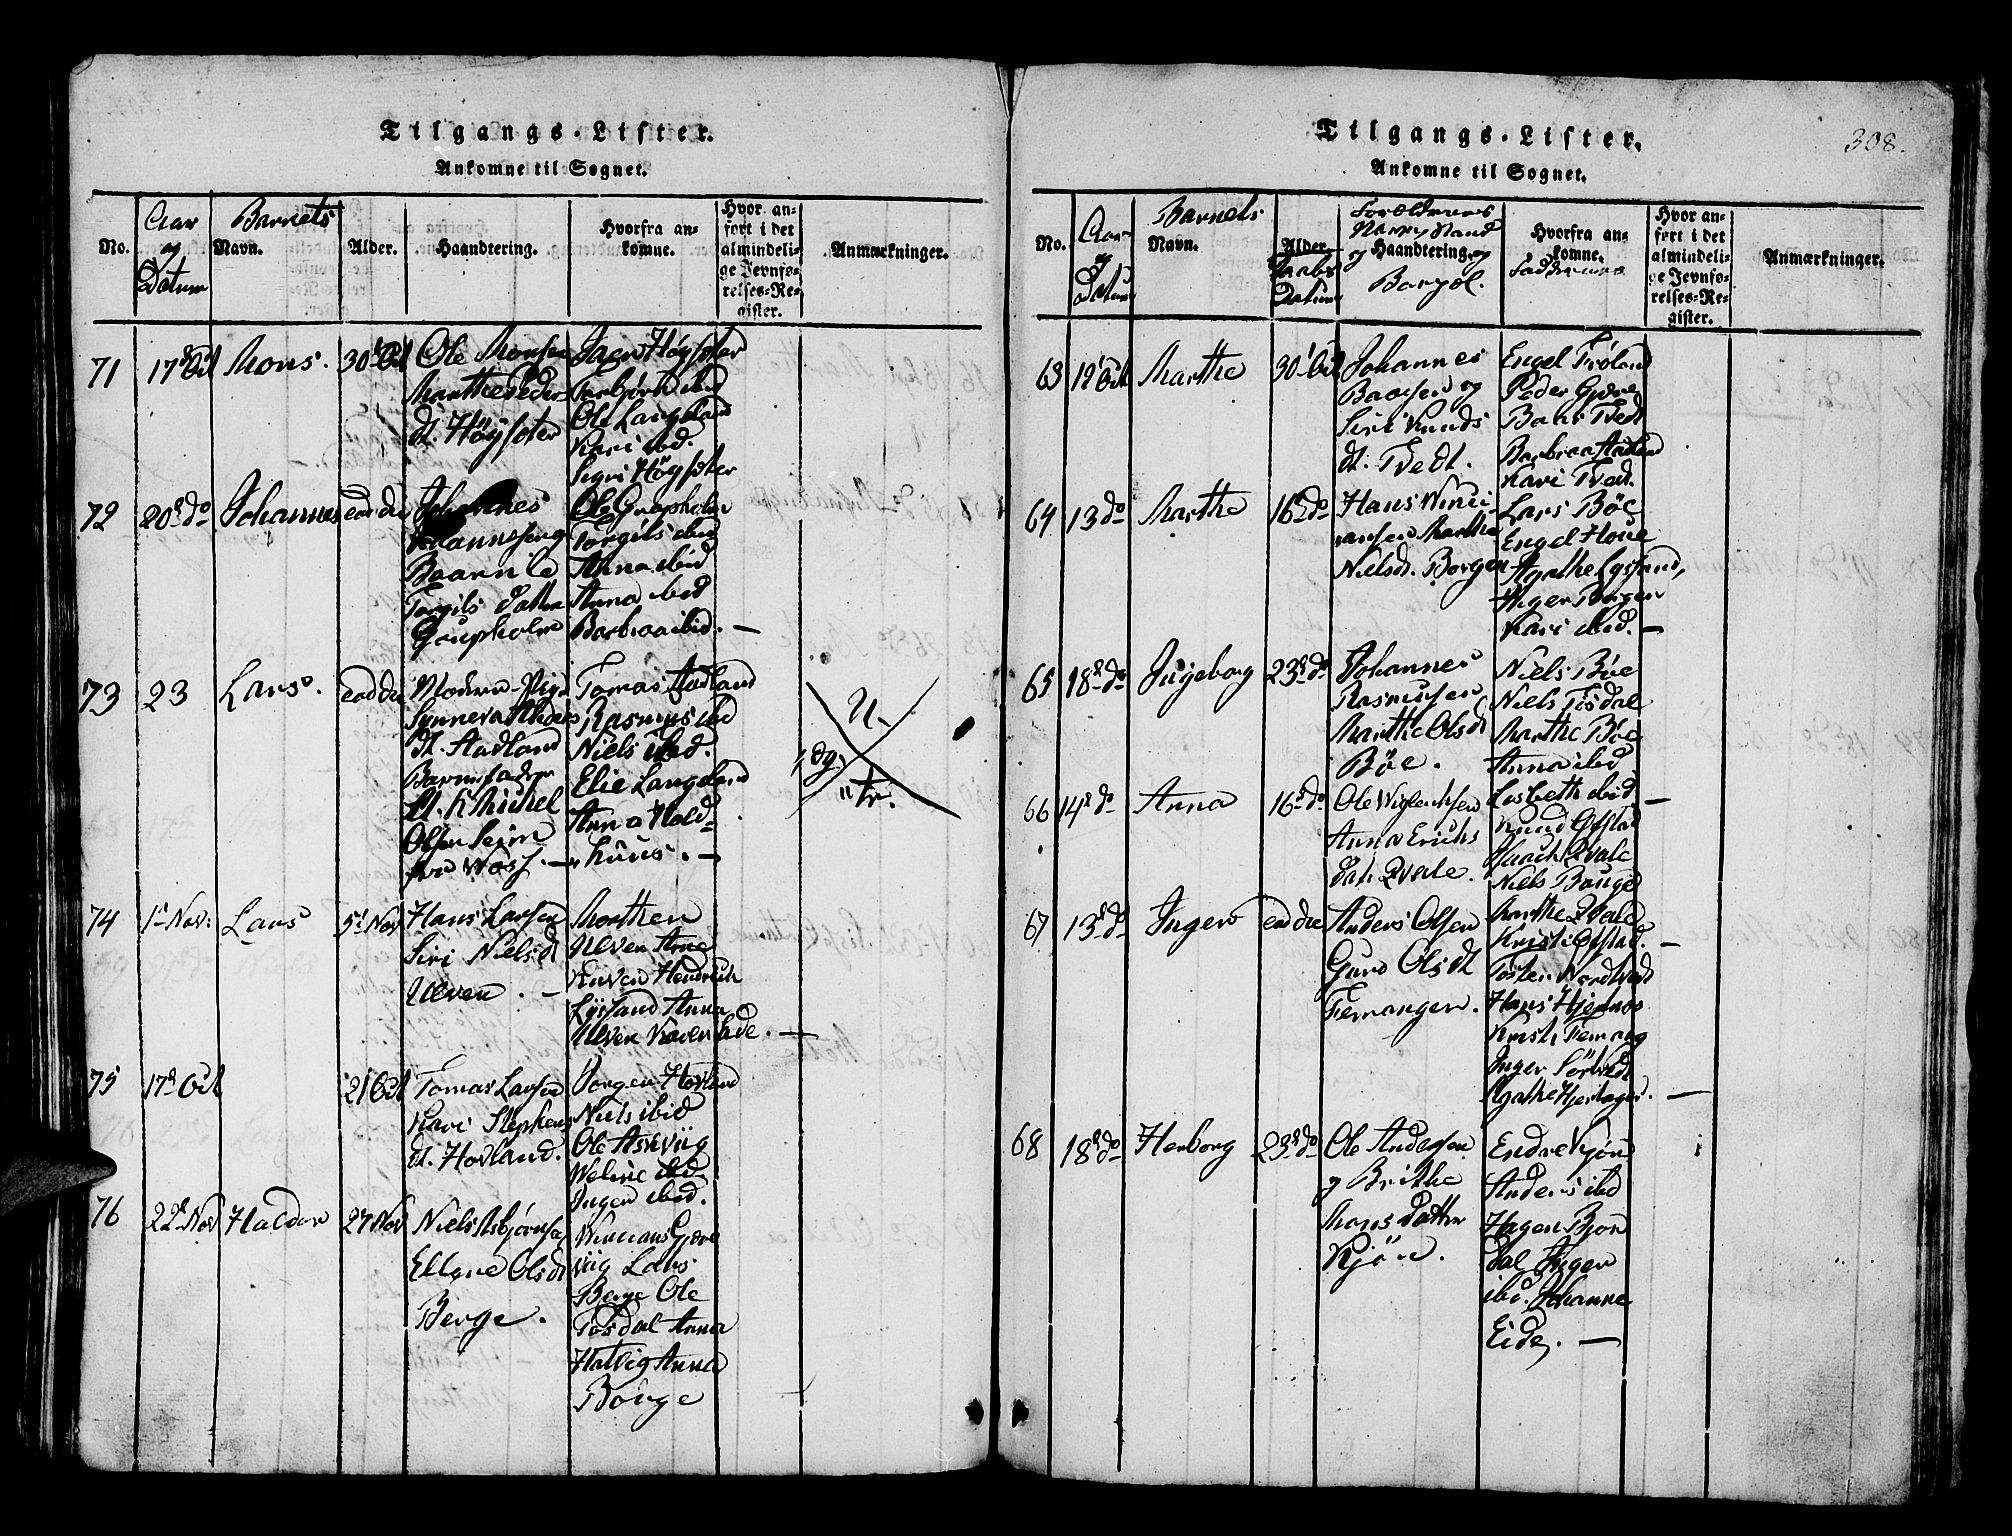 Tilgangs-Lister.
Ankomne til Sognet.
No.
Aar og Datum
Barnets Navn.
Alder.
Haandtering.
Hvorfra ankomne.
Hvor anført i det almindelige Jevnførelses-Register.
Anmærkninger.
71 17d Oct Mons. 30t Oct
Ole Monsen
Marthe Peders
dt. Høysæter
Høysæter
Torbjørn ibid
Ole Langeland
Kari ibd.
Sigri Høysæter
72 20d do Johannes eod die
Johannes
Johannessen og
Torgils Datter
Goupholm
Ole Goupholm
Torgils ibid
Anna ibid
Anna ibid
Barbraa ibid. —
73 23 Lars. eod die
Moderen Pige
Synneva
dt. Aadland
Barnefader
Michel
Olsen Seim
fra Woss. —
Tomas Aadland
Rasmus ibd
Niels ibid.
Elie Langeland
Anna Hold=
huus. —
U.
74 1t Nov: Lars 5t Nov
Hans Larsen
Siri Nielsdt
Ulven. —
Morthen
Ulven Arne
Kuven Hendrich
Lysand Anna
Ulven
75 17d Oct 21 Oct
Tomas Larsen
Kari Stephens
dt. Hovland.
Jørgen Hovland
Niels ibid
Ole Askviig
ibid
Inger ibid.
76 22d Nov Haldor 27 Nov
Niels Asbjørnsen
Ellgne Olsdt
Berge.
Lars
Berge Ole
Tøsdal Anna
Hatvig Anna
Borge
Tilgangs-Lister.
Ankomne til Sognet.
308.
No.
Aar og Datum
Barnets Navn.
Alder.
Daabs Datum
Forældrenes Navn, Stand og Haandtering og Bopæl.
Hvorfra ankomne.
Faddernes
Hvor anført i det almindelige Jevnførelses-Register.
Anmærkninger.
63 12t Oct Marthe 30t Oct
Johannes
Baarsen og
Siri Knuds
dt. Tvedt.
Engel Frøland
Peder Gjøre
Baar Tvedt
Barbraa Aadland
Kari Tved.
64 13 do Marthe 16d do
Hans Winci
ansen Marthe
Nielsd. Borgen
Lars Bøe
Engel Houe
Agathe Lysand,
Inger Borgen
Kari ibid. —
65 18d do Ingeborg 23d do
Johannes
Rasmussen
Marthe Olsdt
Bøe.
Niels Bøe
Niels Tøsdal
Marthe Boe
Anna ibid
Lisbeth ibid —
66 14d do Anna 16d do
Ole
Anna Erichs
dat. Qvale.
Knud Ofstad
Qvale
Niels Bouge
Marthe Qvale
Kristi Ofstad. —
67 13d do Inger eod die
Anders Olsen
Guro Olsdt
Femanger.
Tosten Nordtvedt
Hans Hjelmo
Kristi Femang
Inger Sørtvedt
Agathe Hjertager. —
68 18d do Herborg 23d do
Ole Andersen
og Brithe
Mons Datter
Kjøn.
Endre Kjøn
Anders ibd
Hagen Bjor
dal Inger
ibd. Johanne
Eide. —